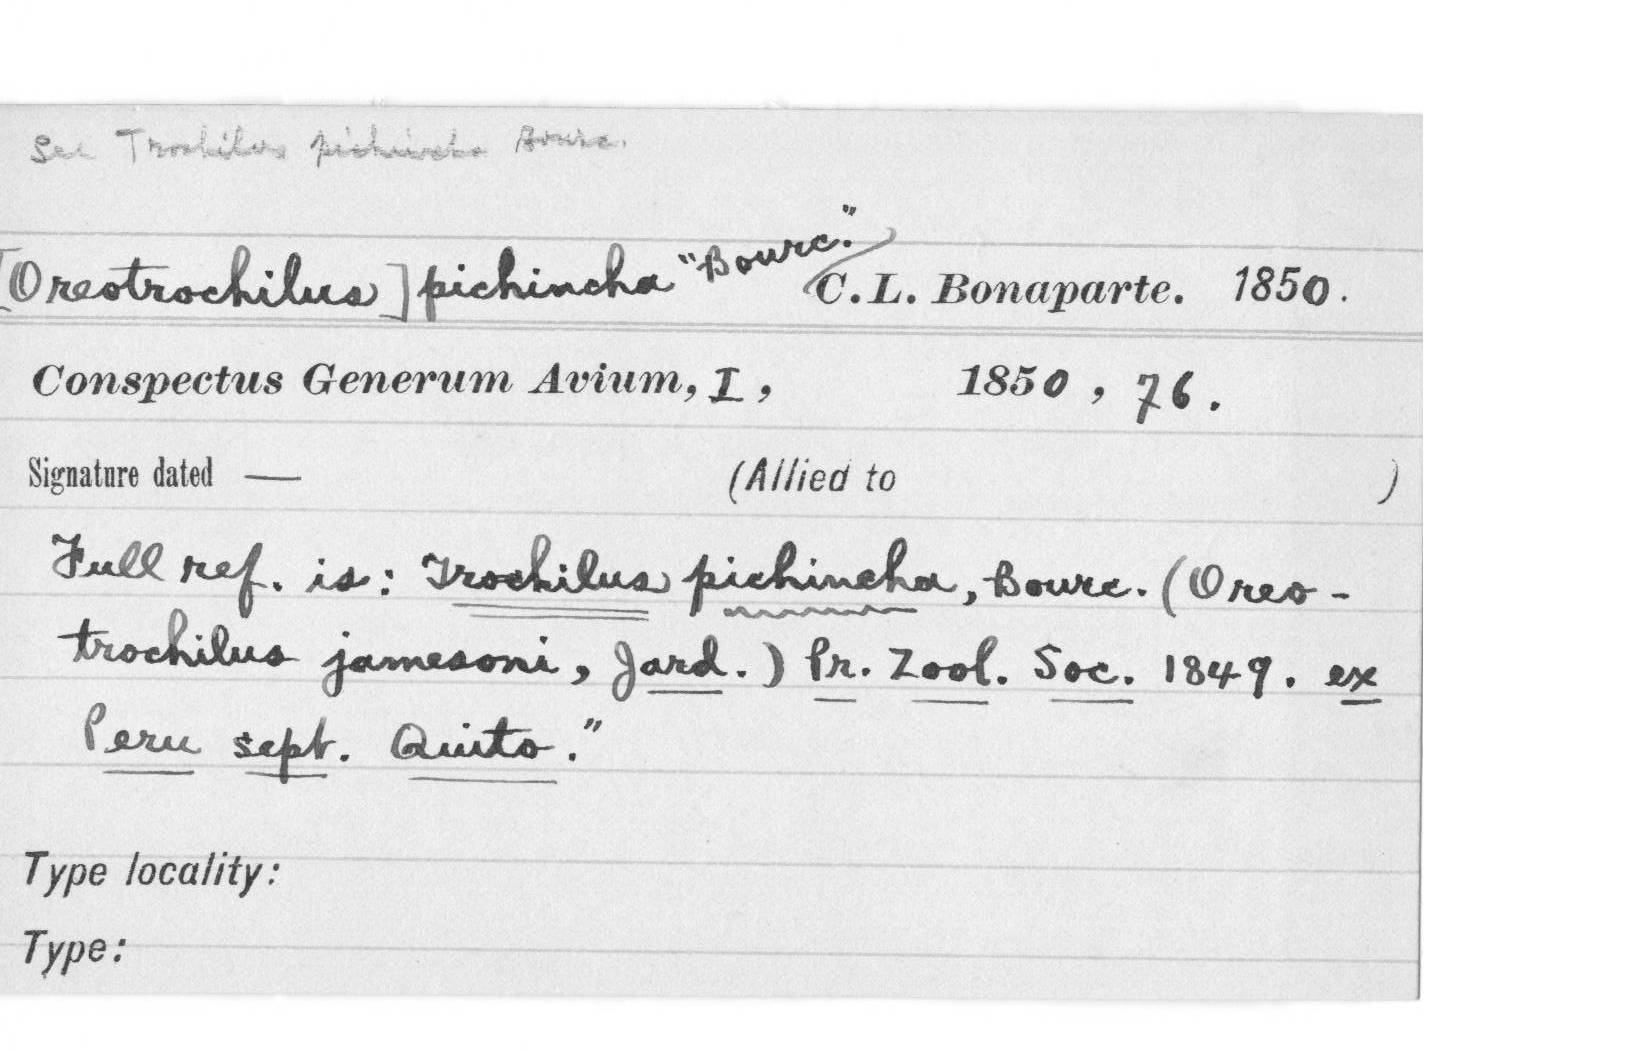 See Trochilus pichincha Bourc.
[Oreotrochilus] pichincha "Bourc." C.L. Bonaparte. 1850.
Conspectus Generum Avium, I, 1850, 76.
Signature dated — (Allied to )
Full ref. is: Trochilus pichincha, Bourc. (Oreo-
trochilus jamesoni, Jard.) Pr. Zool. Soc. 1849. ex
Peru sept. Quito."
Type locality:
Type: